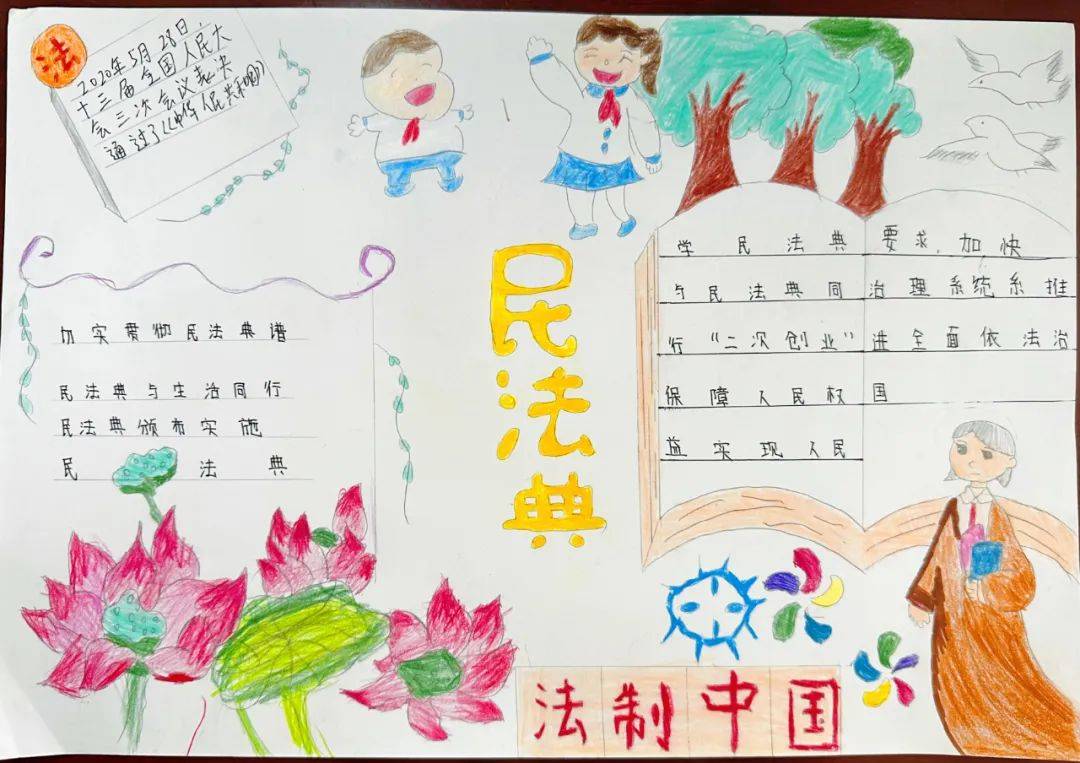 法
2020年5月28日,
十三届全国人民大
会三次会议表决
通过了《中华人民共和国》
切实贯彻民法典谱
民法典与生活同行
民法典颁布实施
民法典
民法典
学民法典
与民法典同
行“二次创业”
保障人民权
益实现人民
要求,加快
治理系统系推
进全面依法治
国
法制中国